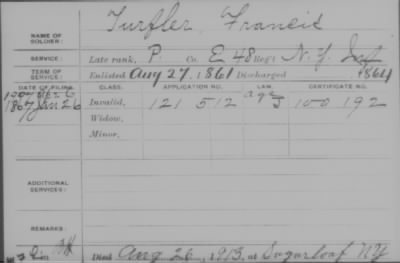 Turfler, Francis
NAME OF SOLDIER:
SERVICE: Late rank, P. Co. E 48 Reg't N.Y. Inf
TERM OF SERVICE: Enlisted Aug 27, 1861 Discharged 1864
DATE OF FILING. CLASS. APPLICATION NO. LAW. CERTIFICATE NO.
1867 Jan 26 Invalid, 121 512 age 100 192
Widow,
Minor,
ADDITIONAL SERVICES:
REMARKS:
Died Aug 26, 1913, at Sugarloaf NY